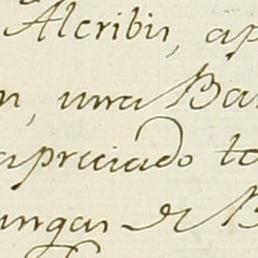 Alcribis, ap
n, una Ba
apreciado to
ungas de B